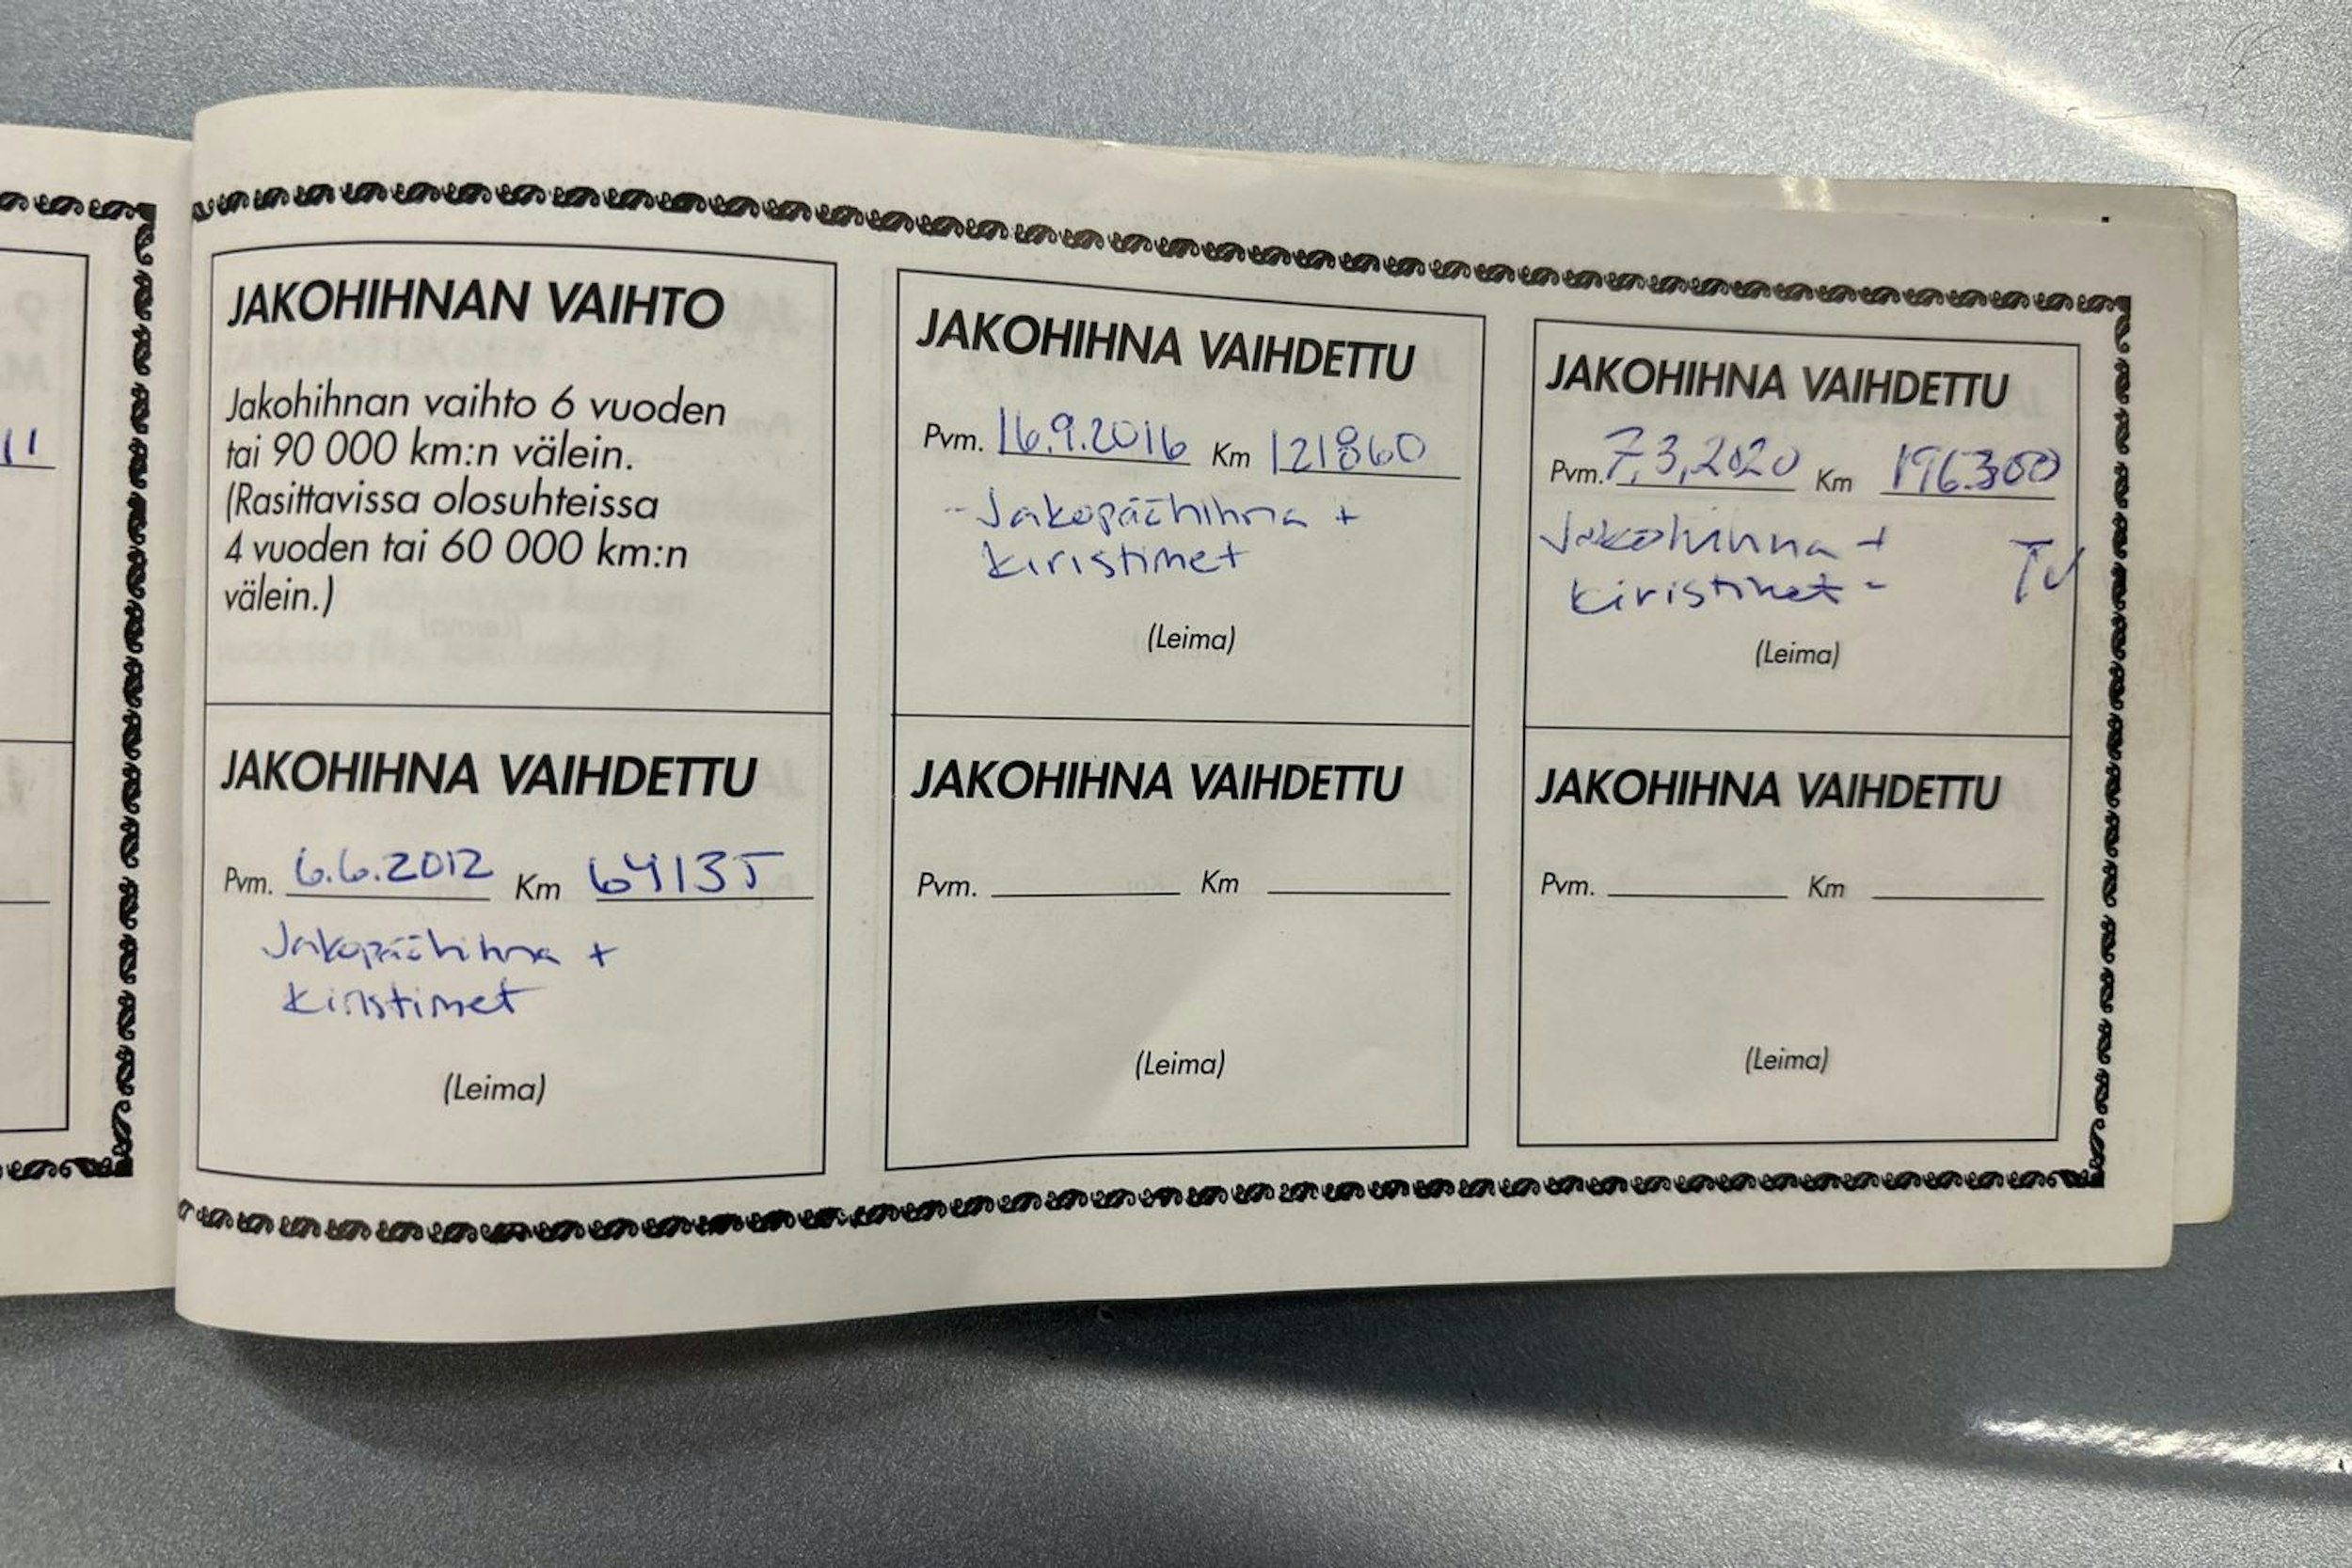 11
JAKOHIHNAN VAIHTO
Jakohihnan vaihto 6 vuoden
tai 90 000 km:n välein.
(Rasittavissa olosuhteissa
4 vuoden tai 60 000 km:n
välein.)
JAKOHIHNA VAIHDETTU
Pvm. 6.6.2012 Km 64135
Jakopäähihna +
kiristimet
(Leima)
JAKOHIHNA VAIHDETTU
Pvm. 16.9.2016 Km 121860
- Jakopäähihna +
kiristimet
(Leima)
JAKOHIHNA VAIHDETTU
Pvm. Km
(Leima)
JAKOHIHNA VAIHDETTU
Pvm. 7,3,2020 Km 196300
Jakohihna +
kiristimet -
(Leima)
JAKOHIHNA VAIHDETTU
Pvm. Km
(Leima)